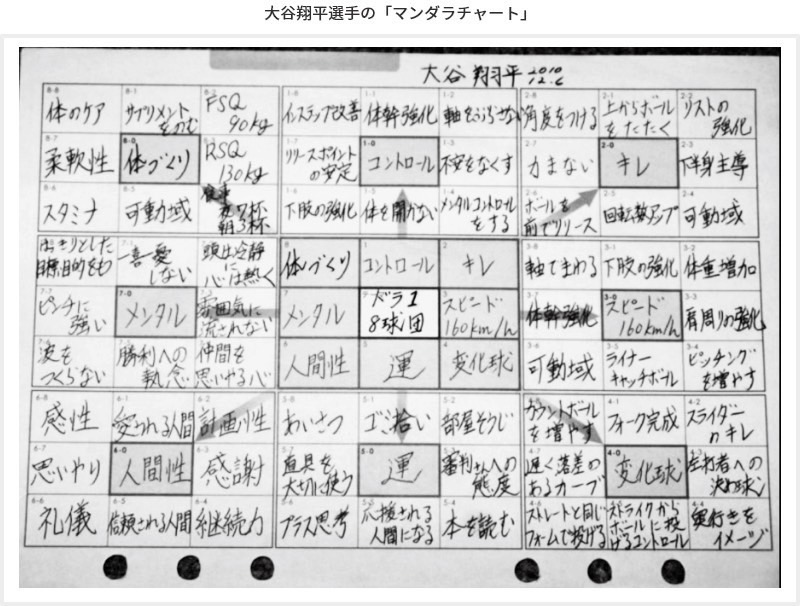 大谷翔平選手の「マンダラチャート」
大谷 翔平 2010 12.6
体のケア
サプリメントをのむ
FSQ 90kg
インステップ改善
体幹強化
軸をぶらさない
角度をつける
上からボールをたたく
リストの強化
柔軟性
体づくり
RSQ 130kg
リリースポイントの安定
コントロール
不安をなくす
力まない
キレ
下半身主導
スタミナ
可動域
食事 夜7杯 朝3杯
下肢の強化
体を開かない
メンタルコントロールをする
ボールを前でリリース
回転数アップ
可動域
はっきりとした目標、目的をもつ
一喜一憂しない
頭は冷静に心は熱く
体づくり
コントロール
キレ
軸でまわる
下肢の強化
体重増加
ピンチに強い
メンタル
雰囲気に流されない
メンタル
ドラ1 8球団
スピード 160km/h
体幹強化
スピード 160km/h
肩周りの強化
波をつくらない
勝利への執念
仲間を思いやる心
人間性
運
変化球
可動域
ライナーキャッチボール
ピッチングを増やす
感性
愛される人間
計画性
あいさつ
ゴミ拾い
部屋そうじ
カウントボールを増やす
フォーク完成
スライダーのキレ
思いやり
人間性
感謝
道具を大切に使う
運
審判さんへの態度
遅く落差のあるカーブ
変化球
左打者への決め球
礼儀
信頼される人間
継続力
プラス思考
応援される人間になる
本を読む
ストレートと同じフォームで投げる
ストライクからボールに投げるコントロール
奥行きをイメージ